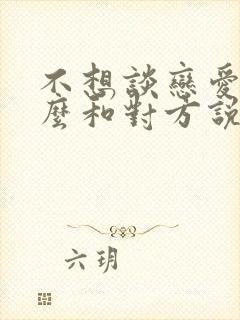 不想談戀愛
麼和對方說
六玥